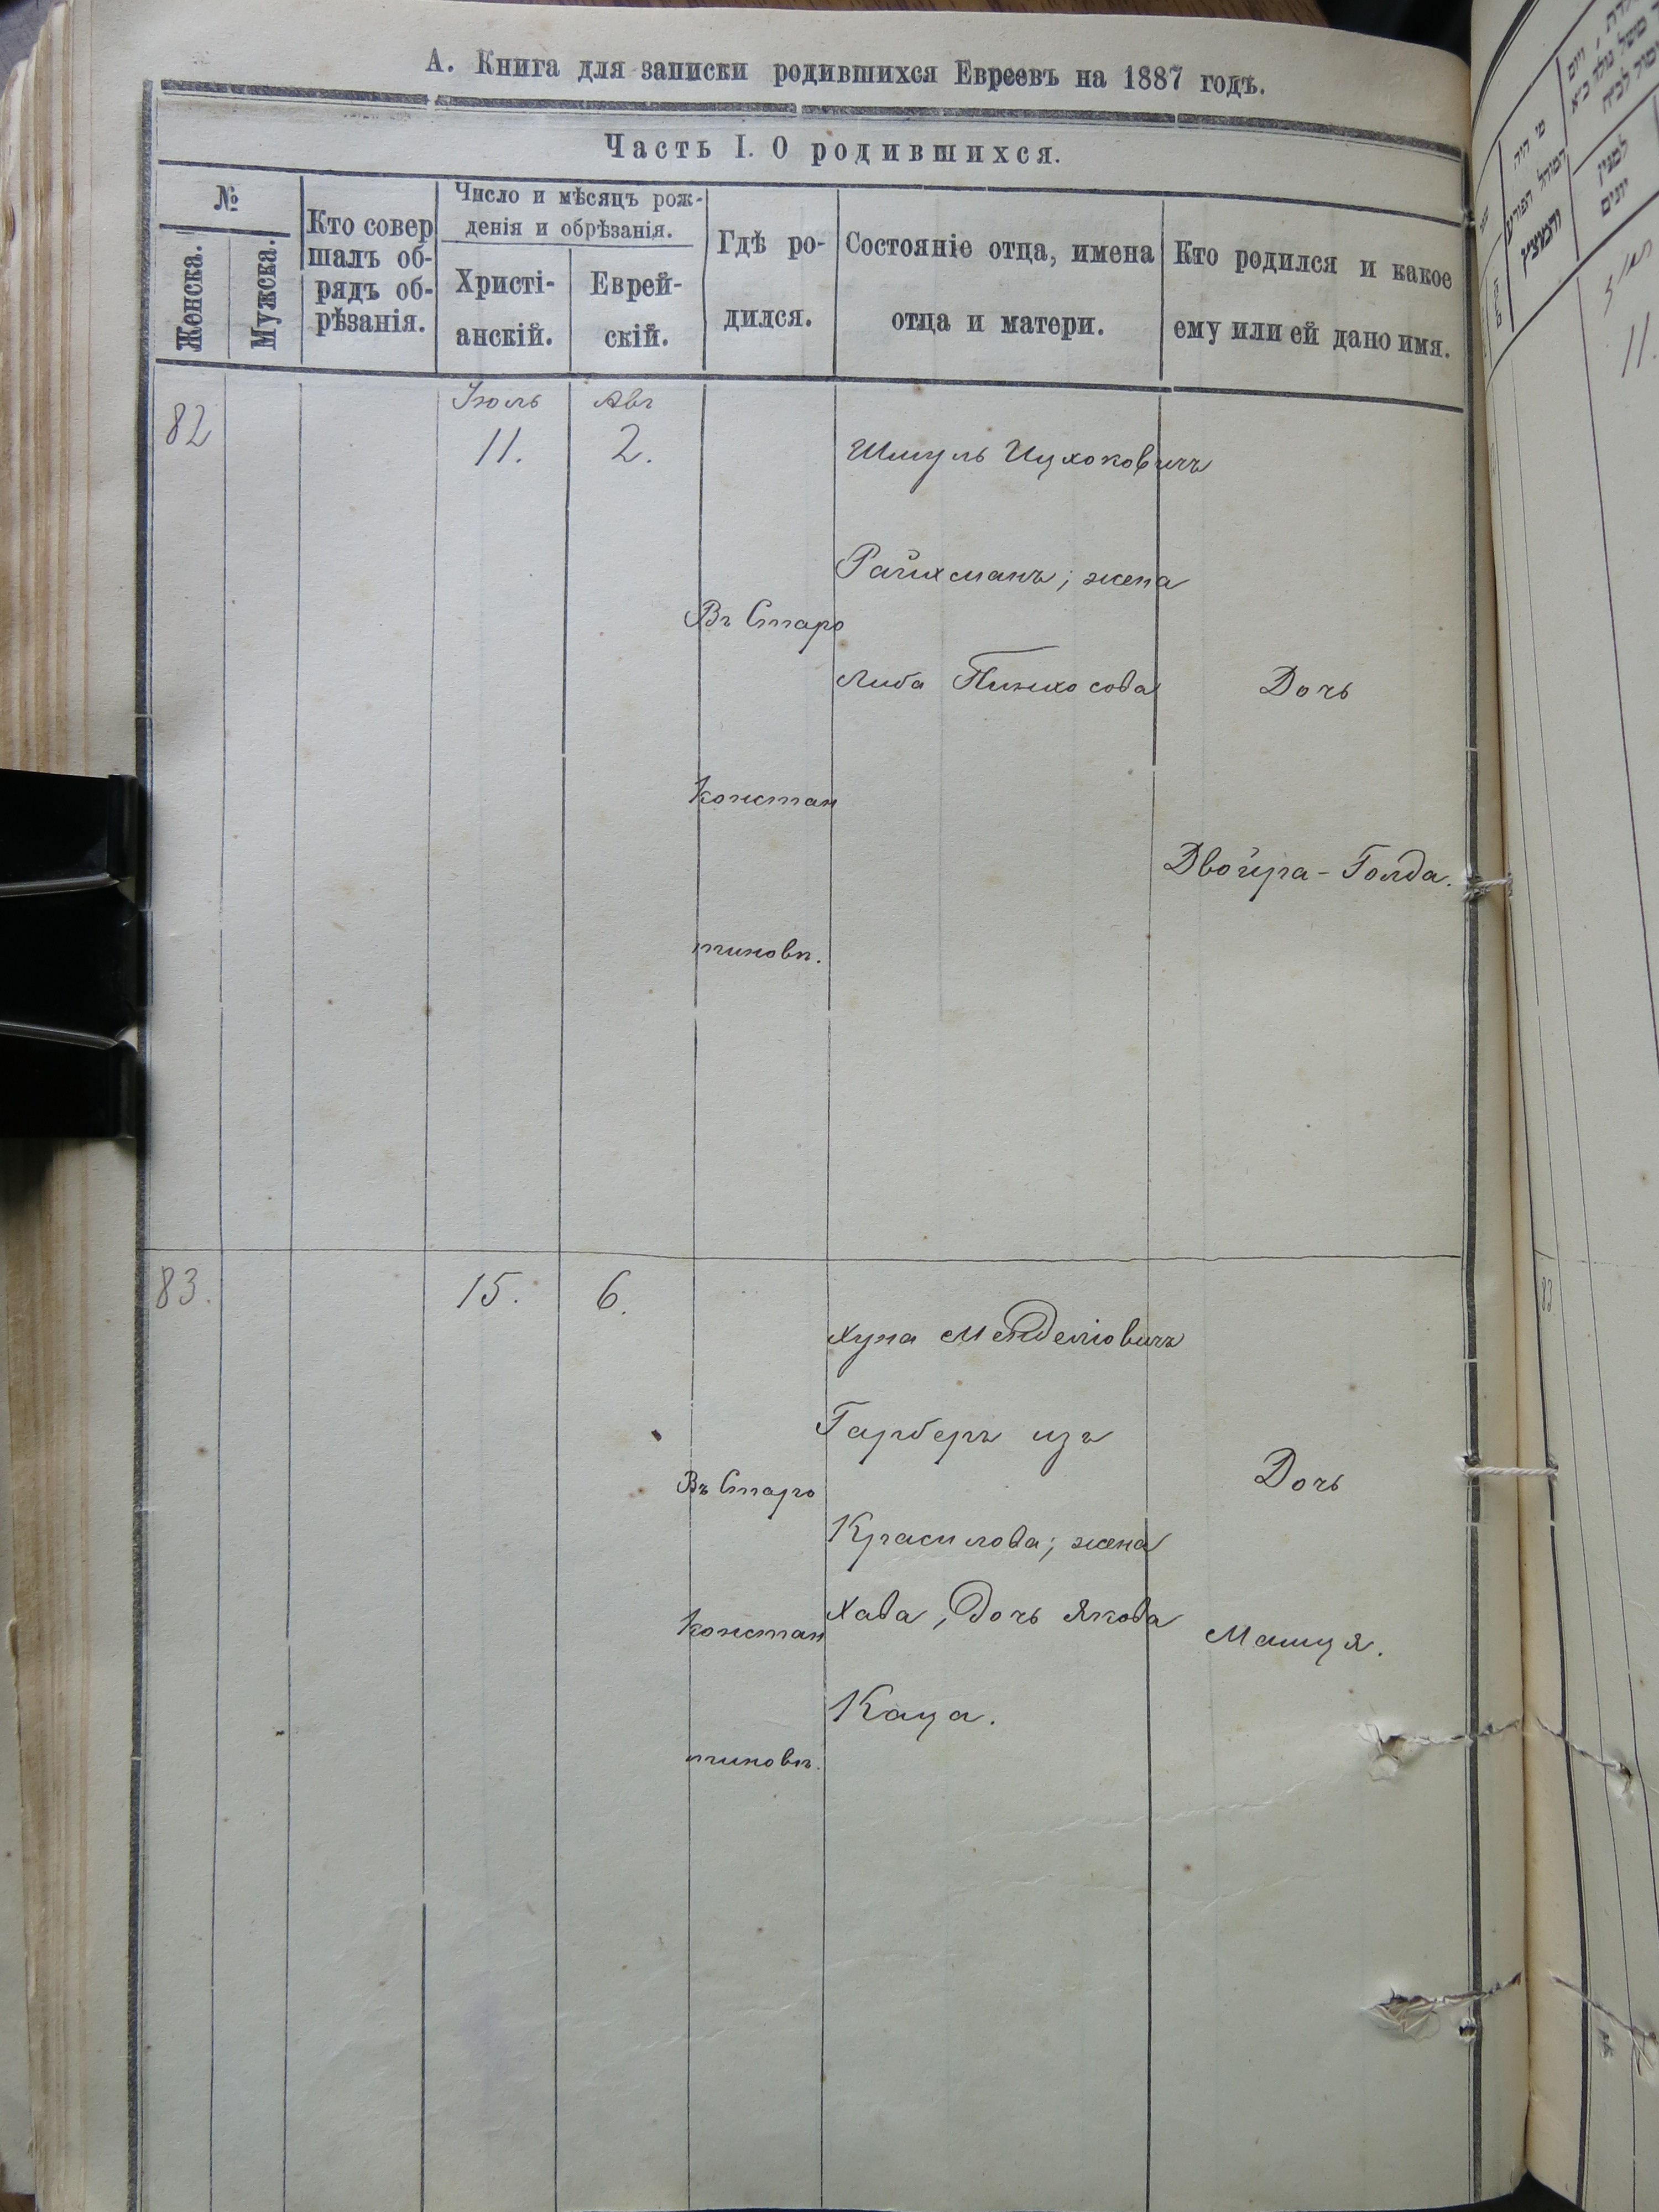 А. Книга для записки родившихся Евреевъ на 1887 годъ.
Часть I. О родившихся.
№
Женска.
Мужска.
Кто совер
шалъ об-
рядъ об-
рѣзанія.
Число и мѣсяцъ рож-
денія и обрѣзанія.
Христі-
анскій.
Еврей-
скій.
Гдѣ ро-
дился.
Состояніе отца, имена
отца и матери.
Кто родился и какое
ему или ей дано имя.
82
Іюль
11.
Авг
2.
Въ Старо
констан
тиновѣ.
Шмуль Ицхоковичъ
Райхманъ; жена
Либа Пинхосова
Дочь
Двойра-Голда.
83.
15.
6.
Въ Старо
констан
тиновѣ.
Хуна Менделіовичъ
Гарберъ изъ
Красилова; жена
Хава, Дочь Якова
Каца.
Дочь
Машця.
מי היה
המוהל
והמוציץ
למנין
יונים
11.
83